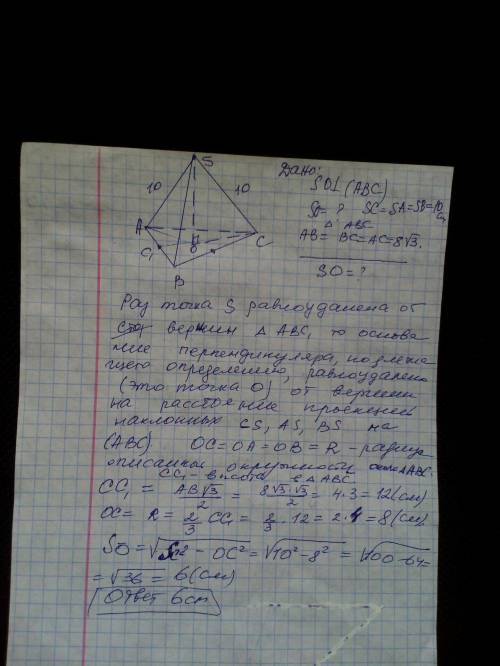 S
10
10
A
C
C₁
O
B
Дано:
SO⊥(ABC)
SO = ? SC=SA=SB=10 см
△ ABC
AB = BC=AC=8√3.
SO = ?
Раз точка S равноудалена от
вершин △ ABC, то основа
ние перпендикуляра,
определению, равноудалено
(это точка O) от вершин
на расстояние проекций
наклонных CS, AS, BS на
(ABC) OC=OA=OB=R - радиус
описанной окружности около △ABC.
CC₁ - высота △ ABC
CC₁ = AB√3/2 = 8√3·√3/2 = 4·3=12(см)
OC= R= 2/3 CC₁ = 2/3 · 12 = 2·4=8(см)
SO=√SC² - OC² = √10² - 8² = √100 - 64 =
= √36 = 6(см)
Ответ 6см